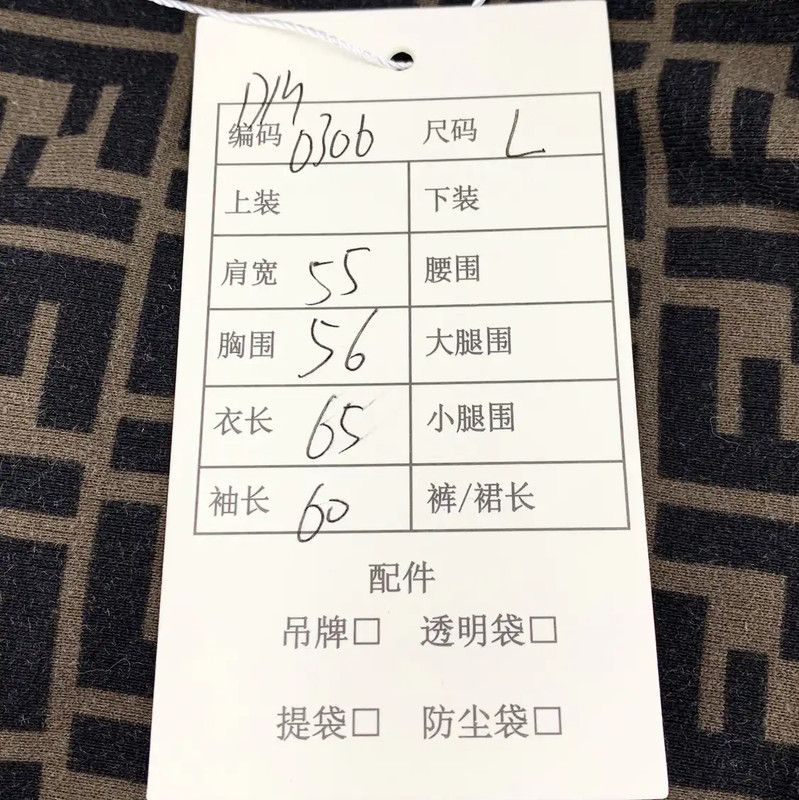 编码 0306 尺码 L
上装 下装
肩宽 55 腰围
胸围 56 大腿围
衣长 65 小腿围
袖长 60 裤/裙长
配件
吊牌□ 透明袋□
提袋□ 防尘袋□